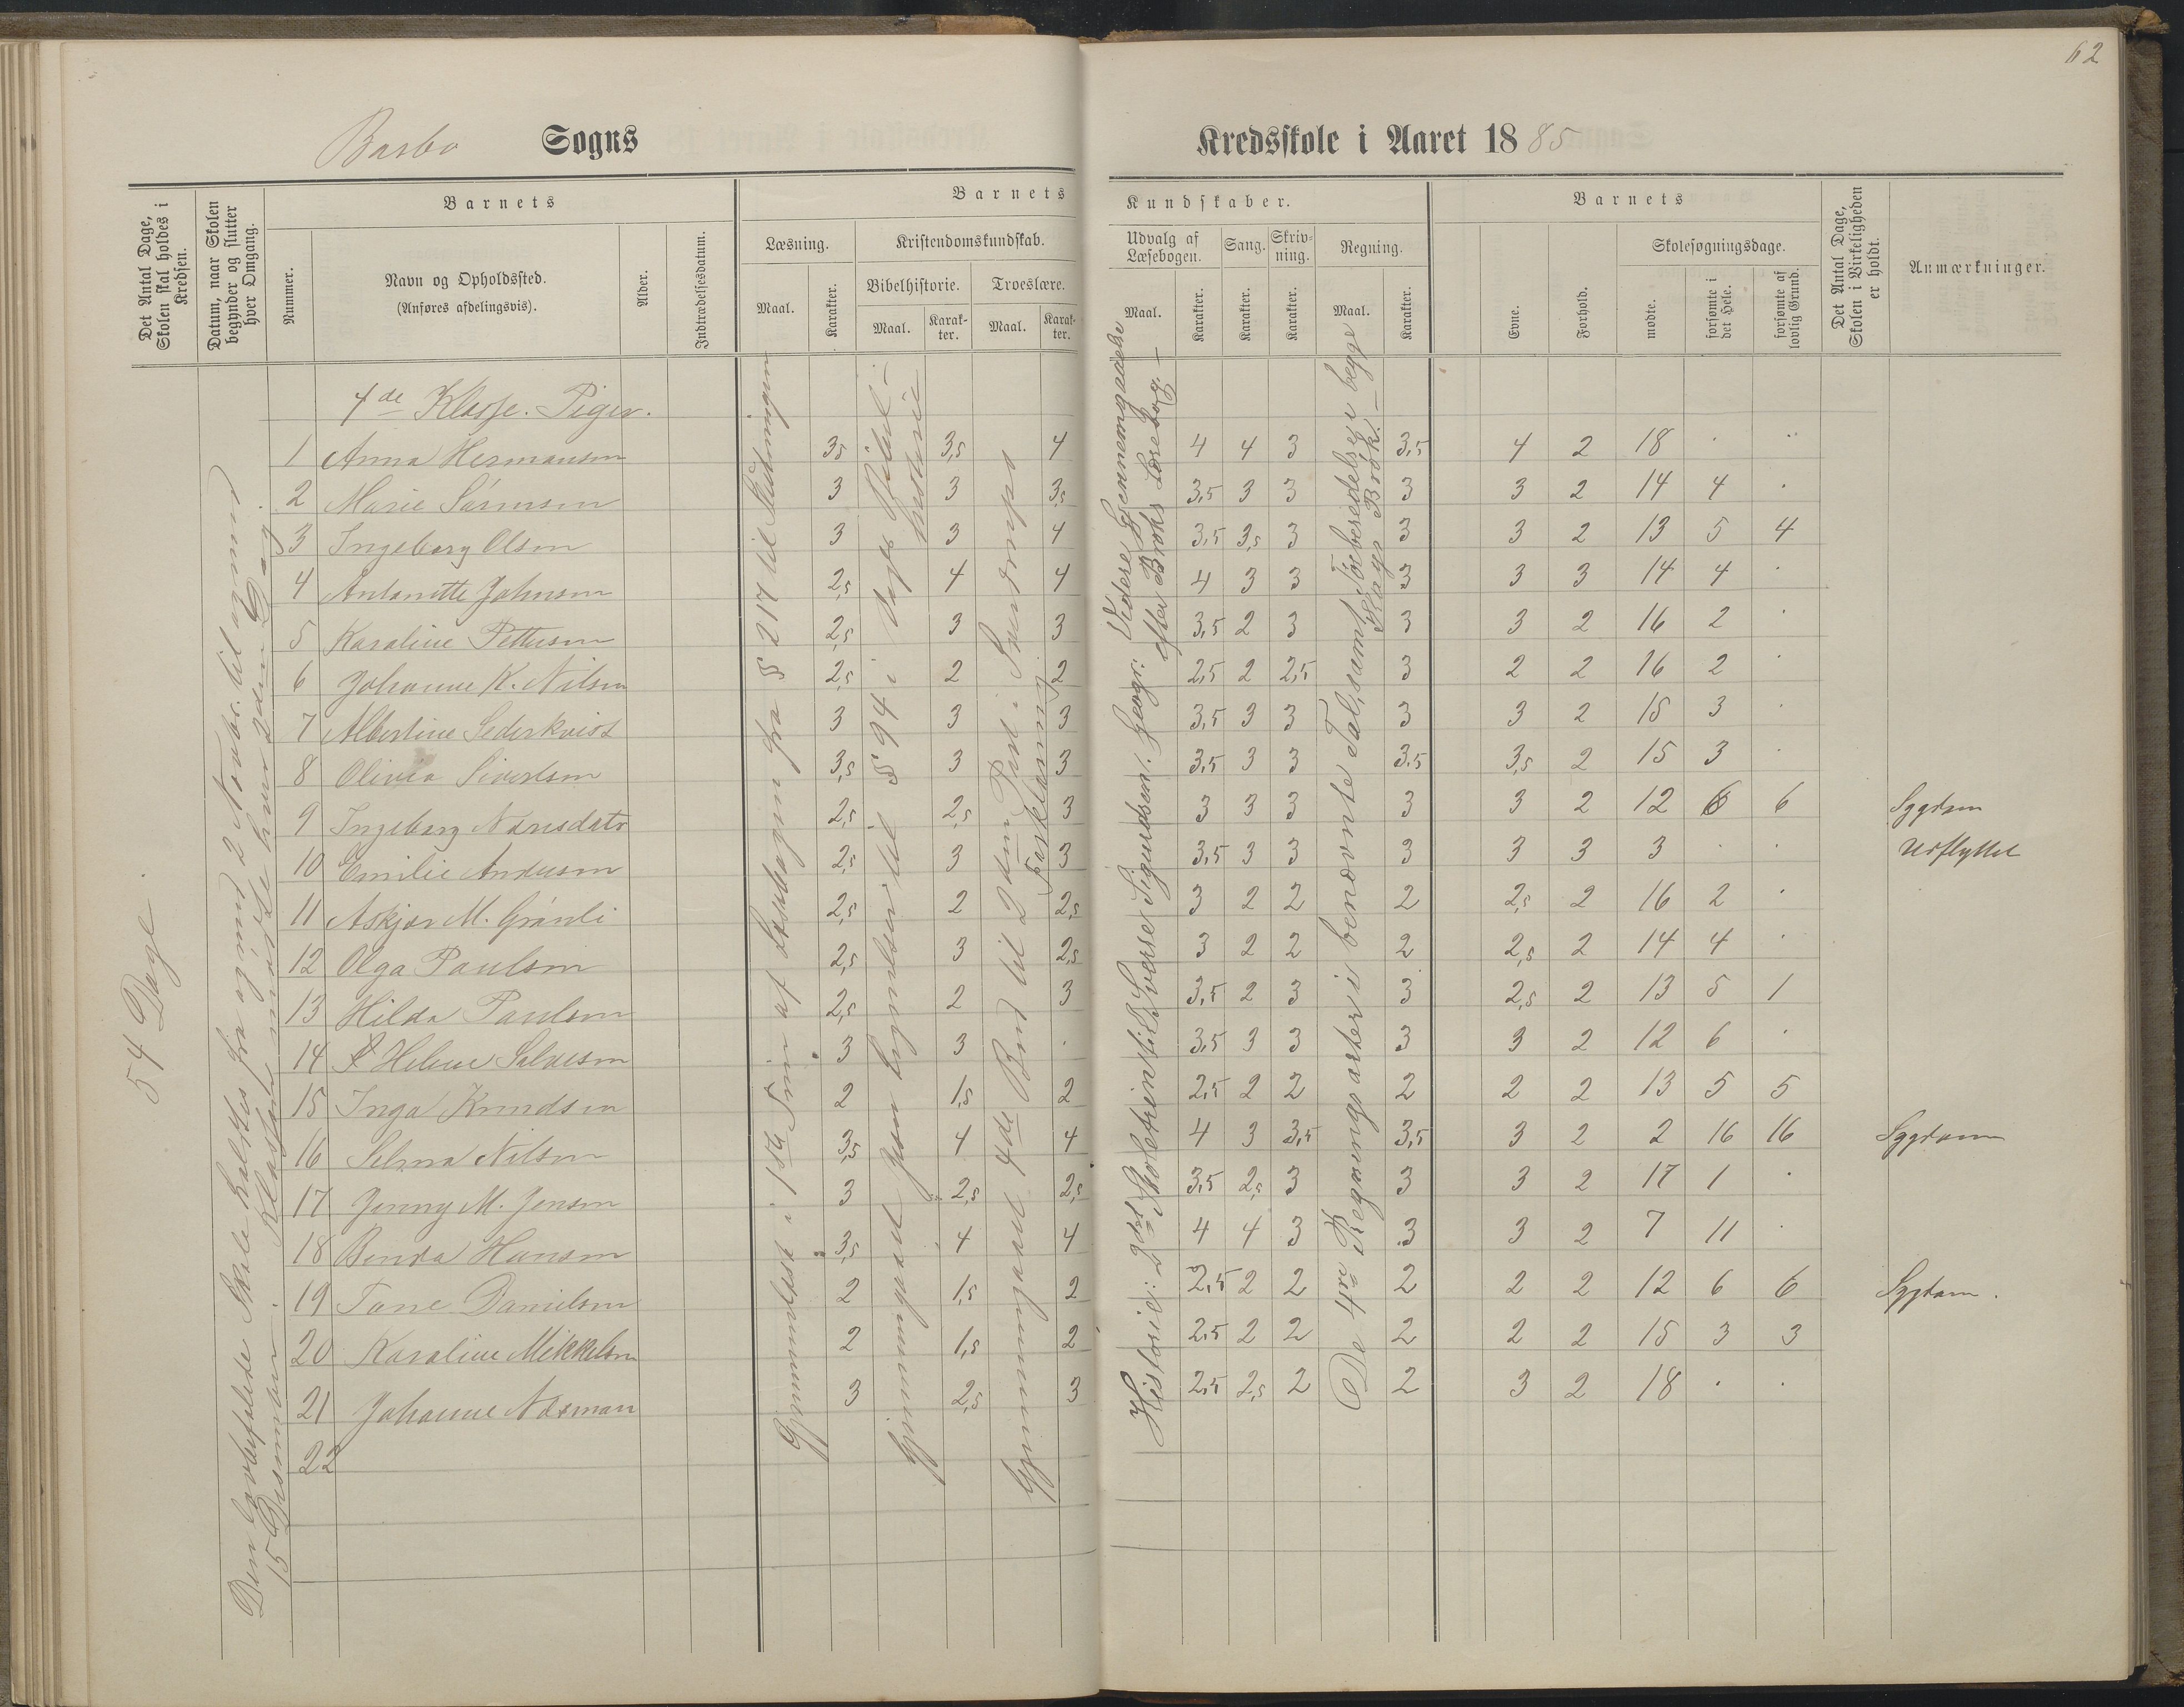 62
Barbo Sogns Kredsskole i Aaret 1885
Det Antal Dage, Skolen skal holdes i Kredsen.
Datum, naar Skolen begynder og slutter hver Omgang.
Barnets
Nummer.
Navn og Opholdssted.
(Anføres afdelingsvis).
Alder.
Indtrædelsesdatum.
Barnets Kundskaber.
Læsning.
Maal.
Karakter.
Kristendomskundskab.
Bibelhistorie.
Maal.
Karakter.
Troeslære.
Maal.
Karakter.
Udvalg af Læsebogen.
Maal.
Karakter.
Sang.
Karakter.
Skrivning.
Karakter.
Regning.
Maal.
Karakter.
Barnets
Evne.
Forhold.
Skolesøgningsdage.
mødte.
forsømte i det Hele.
forsømte af lovlig Grund.
Det Antal Dage, Skolen i Virkeligheden er holdt.
Anmærkninger.
54 Dage
15 Desember. Klassen mødte hver 2den Dag.
Gjennemlæst i 1ste Trin af Læsebogen fra § 217 til Slutningen
Gjennemgaaet Jesu begravelse til § 94 i Vogts Bibelhistorie
Gjennemgaaet 4de Bud til 2den Part i Sverdrups Forklaring
Historie: 2det Skoletrin til Sverre Sigurdsen. Geogr: Videre Gjennemgaaelse
efter Broks Læsebog. –
De 4re Regningsarter i benævnte Tal, samt Forberedelse i begge
Slags Brøk. –
4de Klasse. Piger.
1 Anna Hermansen 3,5 3,5 4 4 4 3 3,5 4 2 18 . .
2 Marie Sørensen 3 3 3,5 3,5 3 3 3 3 2 14 4 .
3 Ingeborg Olsen 3 3 4 3,5 3,5 3 3 3 2 13 5 4
4 Antonette Johnsen 2,5 4 4 4 3 3 3 3 3 14 4 .
5 Karoline Pettersen 2,5 3 3 3,5 2 3 3 3 2 16 2 .
6 Johanne K. Nilsen 2,5 2 2 2,5 2 2,5 3 2 2 16 2 .
7 Albertine Sederkvist 3 3 3 3,5 3 3 3 3 2 15 3 .
8 Olivia Sivertsen 3,5 3 3 3,5 3 3 3,5 3,5 2 15 3 .
9 Ingeborg Narisdatr 2,5 2,5 3 3 3 3 3 3 2 12 6 6 Sygdom
10 Emilie Andersen 2,5 3 3 3,5 3 3 3 3 3 3 . . Udflyttet
11 Askjær M. Grønli 2,5 2 2,5 3 2 2 2 2,5 2 16 2 .
12 Olga Paulsen 2,5 3 2,5 3 2 2 2 2,5 2 14 4 .
13 Hilda Paulsen 2,5 2 3 3,5 2 3 3 2,5 2 13 5 1
14 Helene Salvesen 3 3 . 3,5 3 3 3 3 2 12 6 .
15 Inga Knudsen 2 1,5 2 2,5 2 2 2 2 2 13 5 5
16 Selma Nilsen 3,5 4 4 4 3 3,5 3,5 3 2 2 16 16 Sygdom
17 Jenny M. Jensen 3 2,5 2,5 3,5 2,5 3 3 3 2 17 1 .
18 Benda Hansen 3,5 4 4 4 4 3 3 3 2 7 11 .
19 Tone Danielsen 2 1,5 2 2,5 2 2 2 2 2 12 6 6 Sygdom.
20 Karoline Mikkelsen 2 1,5 2 2,5 2 2 2 2 2 15 3 3
21 Johanne Næsman 3 2,5 3 2,5 2,5 2 2 3 2 18 . .
22